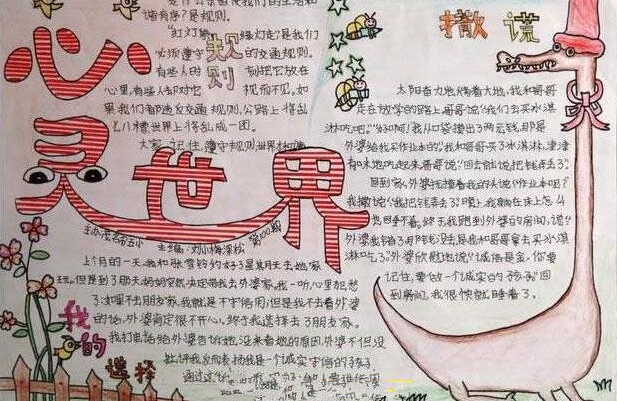 心灵世界
谐有序？是规则。
"红灯停 绿灯走"是我们
必须遵守 的交通规则。
规则
有些人的 刻把它放在
心里，有些人却对它 视而不见，如
果我们都违反交通规则，公路上将乱
七八糟，世界上将乱成一团。
大家 记住，遵守规则，世界
主编：刘小梅
第100期
我的选择
上个月的一天，我和张雪铃约好了星期天去她家
玩，但是到了那天妈妈突然决定带我去外婆家，我一听心里犯愁
了：如果不去朋友家，我就是不守信用；但是我不去看外婆
的话，外婆肯定很不开心，终于我选择去了朋友家。
我打电话给外婆告诉她没来看她的原因，外婆不但没
批评我反而表扬我是个诚实守信的孩子。
通过这
撒谎
太阳奋力地烤着大地，我和哥哥
走在放学的路上，哥哥说："我们去买冰淇
淋吃吧！""好啊！"我从口袋掏出了两元钱，那是
外婆给我买作业本的，我和哥哥买了冰淇淋，津津
有味地吃起来，哥哥说："回去就说把钱弄丢了。"
回到家，外婆抚摸着我的头说："作业本呢？"
我撒谎说："我把钱弄丢了。"晚上，我躺在床上怎么
也睡不着，终于，我跑到外婆的房间，说："
外婆我错了，那钱没丢，是我和哥哥拿去买冰淇
淋吃了。"外婆欣慰地说："诚信是金，你要
记住，要做一个诚实的孩子。"回
到房间，我很快就睡着了。